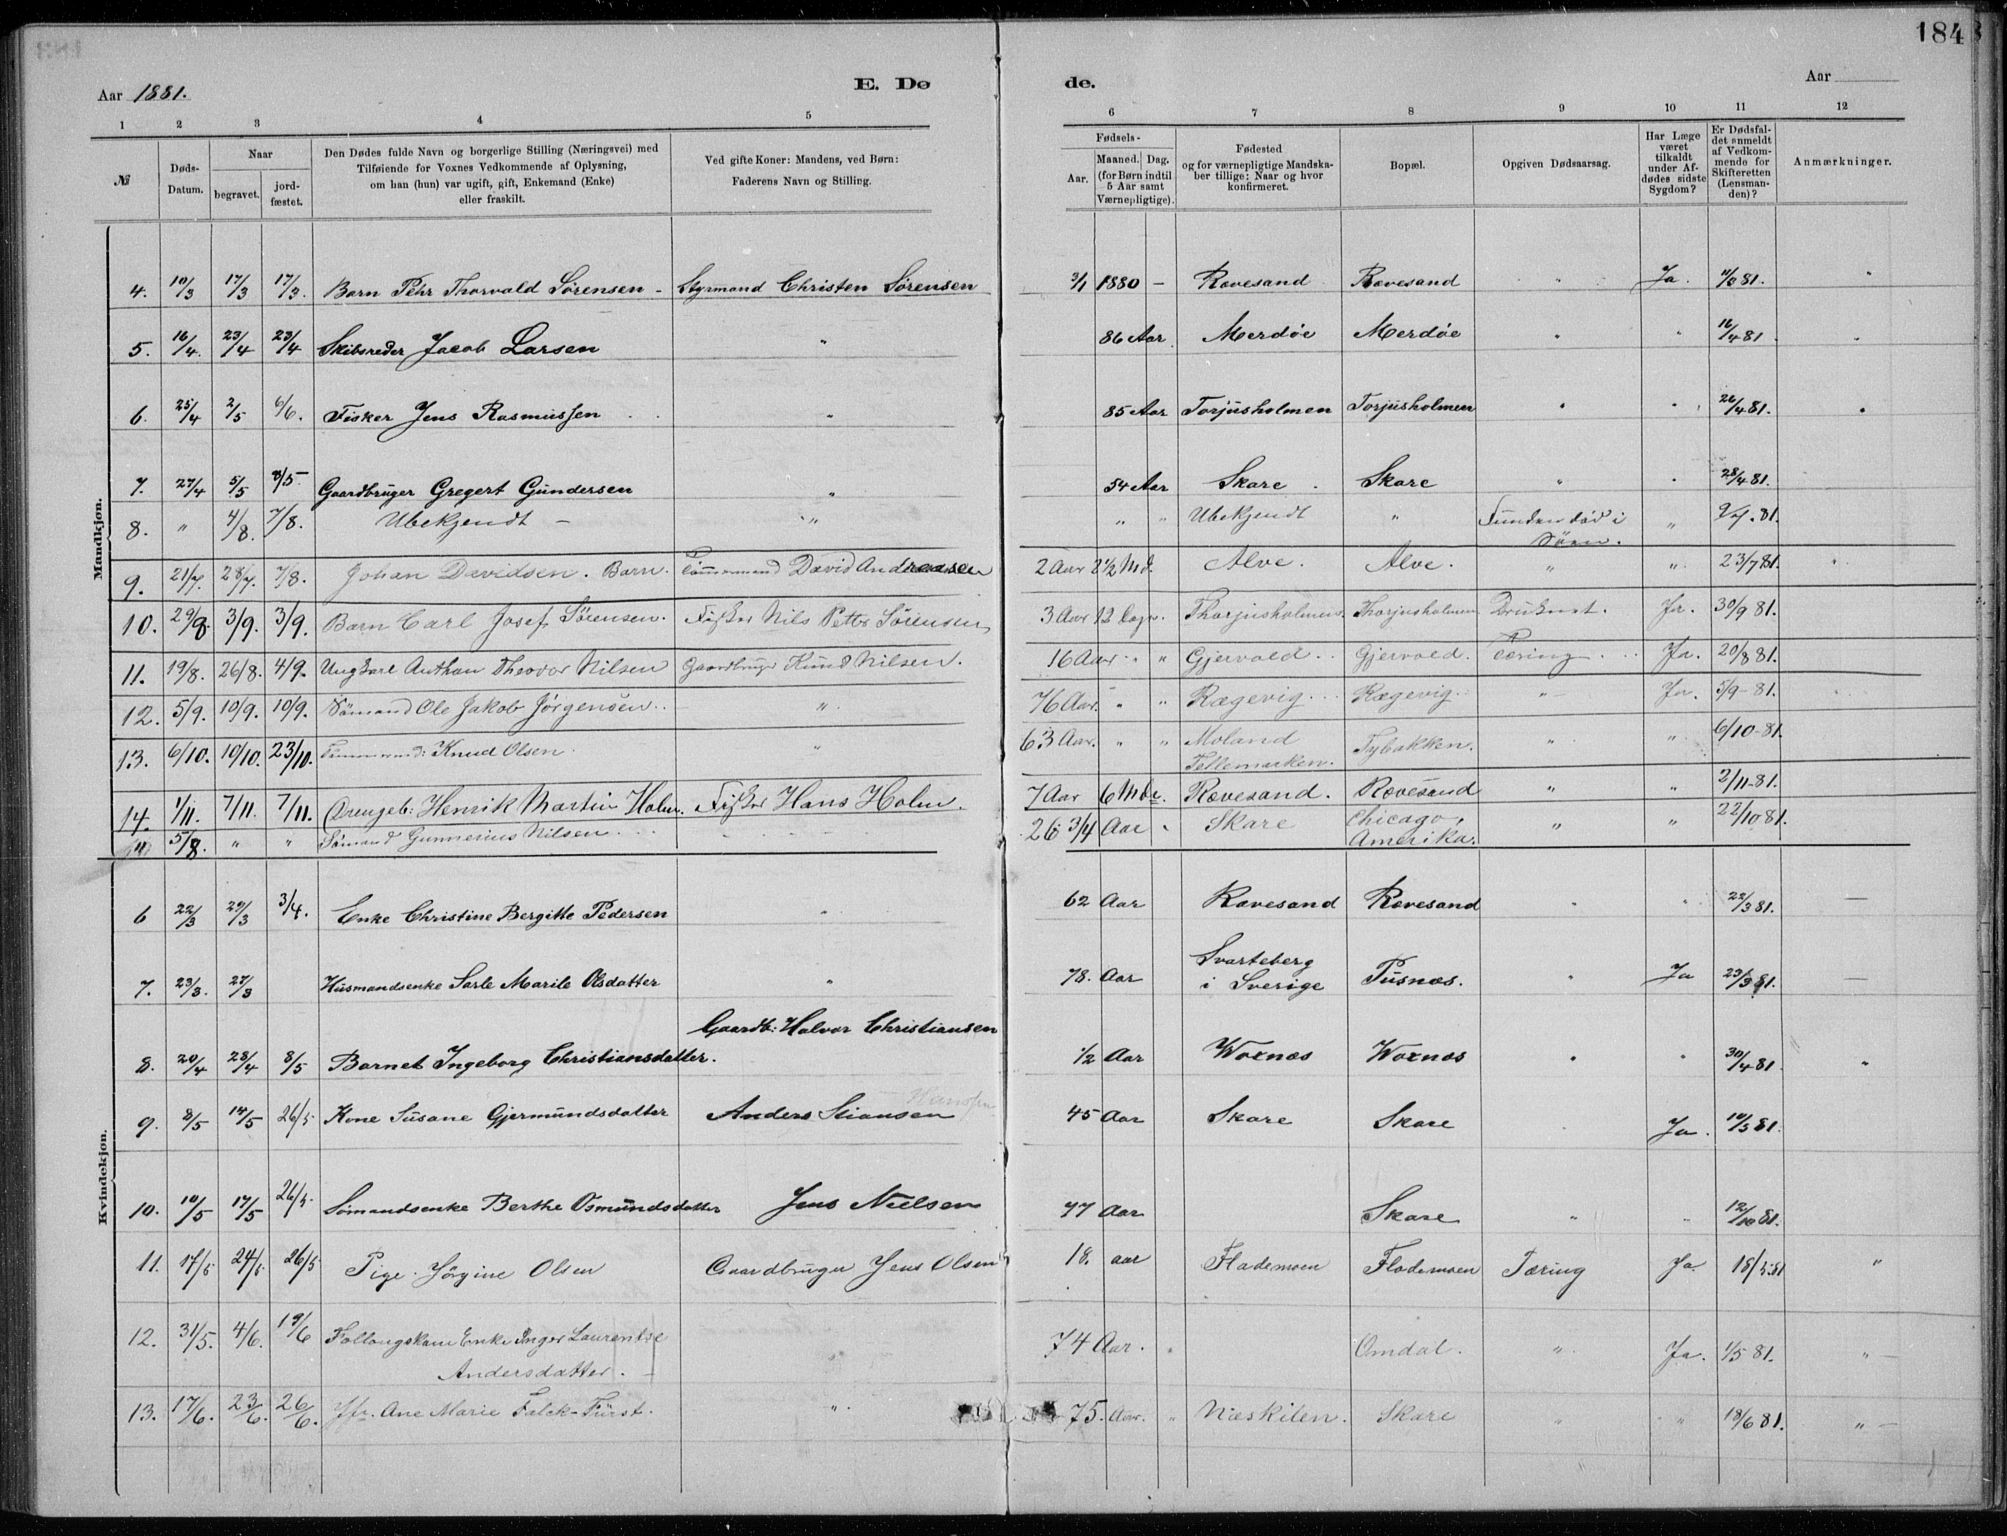 184
Aar 1881.
E. Dø
de.
Aar
1 2 3 4 5 6 7 8 9 10 11 12
№
Døds-Datum.
Naar
begravet.
jord-fæstet.
Den Dødes fulde Navn og borgerlige Stilling (Næringsvei) med
Tilføiende for Voxnes Vedkommende af Oplysning,
om han (hun) var ugift, gift, Enkemand (Enke)
eller fraskilt.
Ved gifte Koner: Mandens, ved Børn:
Faderens Navn og Stilling.
Fødsels-
Aar.
Maaned. Dag.
(for Børn indtil
5 Aar samt
Værnepligtige).
Fødested
og for værnepligtige Mandska-
ber tillige: Naar og hvor
konfirmeret.
Bopæl.
Opgiven Dødsaarsag.
Har Læge
været
tilkaldt
under Af-
dødes sidste
Sygdom?
Er Dødsfal-
det anmeldt
af Vedkom-
mende for
Skifteretten
(Lensman-
den)?
Anmærkninger.
Mandkjøn.
4. 10/3 17/3 17/3. Barn Pehr Thorvald Sørensen - Styrmand Christen Sørensen 3/1 1880 - Rævesand Rævesand " Ja. 81. "
5. 16/4. 23/4 23/4 Skibsreder Jacob Larsen " 86 Aar Merdøe Merdøe " " 16/4 81. "
6. 25/4 2/5 6/6. Fisker Jens Rasmussen " 85 Aar Torjusholmen Torjusholmen " " 26/4 81. "
7. 27/4 5/5 8/5 Gaardbruger Gregert Gundersen " 54 Aar Skare. Skare " " 28/4 81.
8. " 4/8. 7/8. Ubekjendt - " " " Ubekjendt " Funden død i " 81.
Søen.
9. 21/7. 28/7. 7/8. Johan Davidsen. Barn. Tømmermand David Andreasen 2 Aar 2 1/2 Md. Alve. Alve. " " 23/7 81. "
10. 29/8. 3/9. 3/9. Barn Carl Josef Sørensen. Fisker Nils Petter Sørensen 3 Aar 12 Dage. Thorjusholmen. Thorjusholmen Druknet. Ja. 30/9 81.
11. 19/8. 26/8. 4/9. Ungkarl Anthon Theodor Nilsen Gaardbruger Knud Nilsen. 16 Aar " " Gjervold. Gjervold. Tæring Ja. 20/8 81.
12. 5/9. 10/9. 10/9. Sømand Ole Jakob Jørgensen. " 76 Aar. " " Rægevig. Rægevig " Ja. 5/9-81.
13. 6/10. 10/10. 23/10. Tømmermd: Knud Olsen. " 63 Aar. " " Moland Tybakken. " " 6/10-81.
Tellemarken.
14. 1/11. 7/11. 7/11. Drengeb: Henrik Martin Holm. Fisker Hans Holm. 7 Aar 6 Mdr. Rævesand. Rævesand " " 2/11-81.
5/8. " " Sømand Gunnerius Nilsen. 26 3/4 Aar " Skare Chicago, " " 22/10 81.
Amerika.
Kvindekjøn.
6 22/3 29/3 3/4. Enke Christine Bergitte Pedersen " 62 Aar Rævesand Rævesand " " 22/3 81. —
7. 23/3. 27/3 Husmandsenke Sarle Marile Olsdatter " 78. Aar Svarteberg
i Sverige Pusnæs. " Ja 23/3 81. —
Gaardb: Halvor Christiansen
8. 20/4 28/4 8/5 Barnet Ingeborg Christiansdatter. 1/2 Aar Woxnæs Woxnæs " " 30/4 81. "
Hanssen
9. 8/5 14/5 26/5 Kone Susane Gjermundsdatter Anders Stiansen 45 Aar Skare Skare Ja. 10/5 81.
10. 10/5 17/5 26/5. Sømandsenke Berthe Osmundsdatter Jens Nielsen 77 Aar Skare " " 81.
11. 17/5 24/5 26/5 Pige. Jørgine Olsen Gaardbruger Jens Olsen 18. aar Flademoen Flademoen Tæring Ja 18/5 81 "
12. 31/5. 4/6. 19/6 Follougskone Enke Inger Laurentze
Andersdatter. - " 74 Aar. " Omdal. " Ja. 1/5 81. "
13. 17/6. 23/6. 26/6. Jfr. Ane Marie Falck-Fürst. " 75. Aar. " Næskilen. Skare " " 18/6 81. "